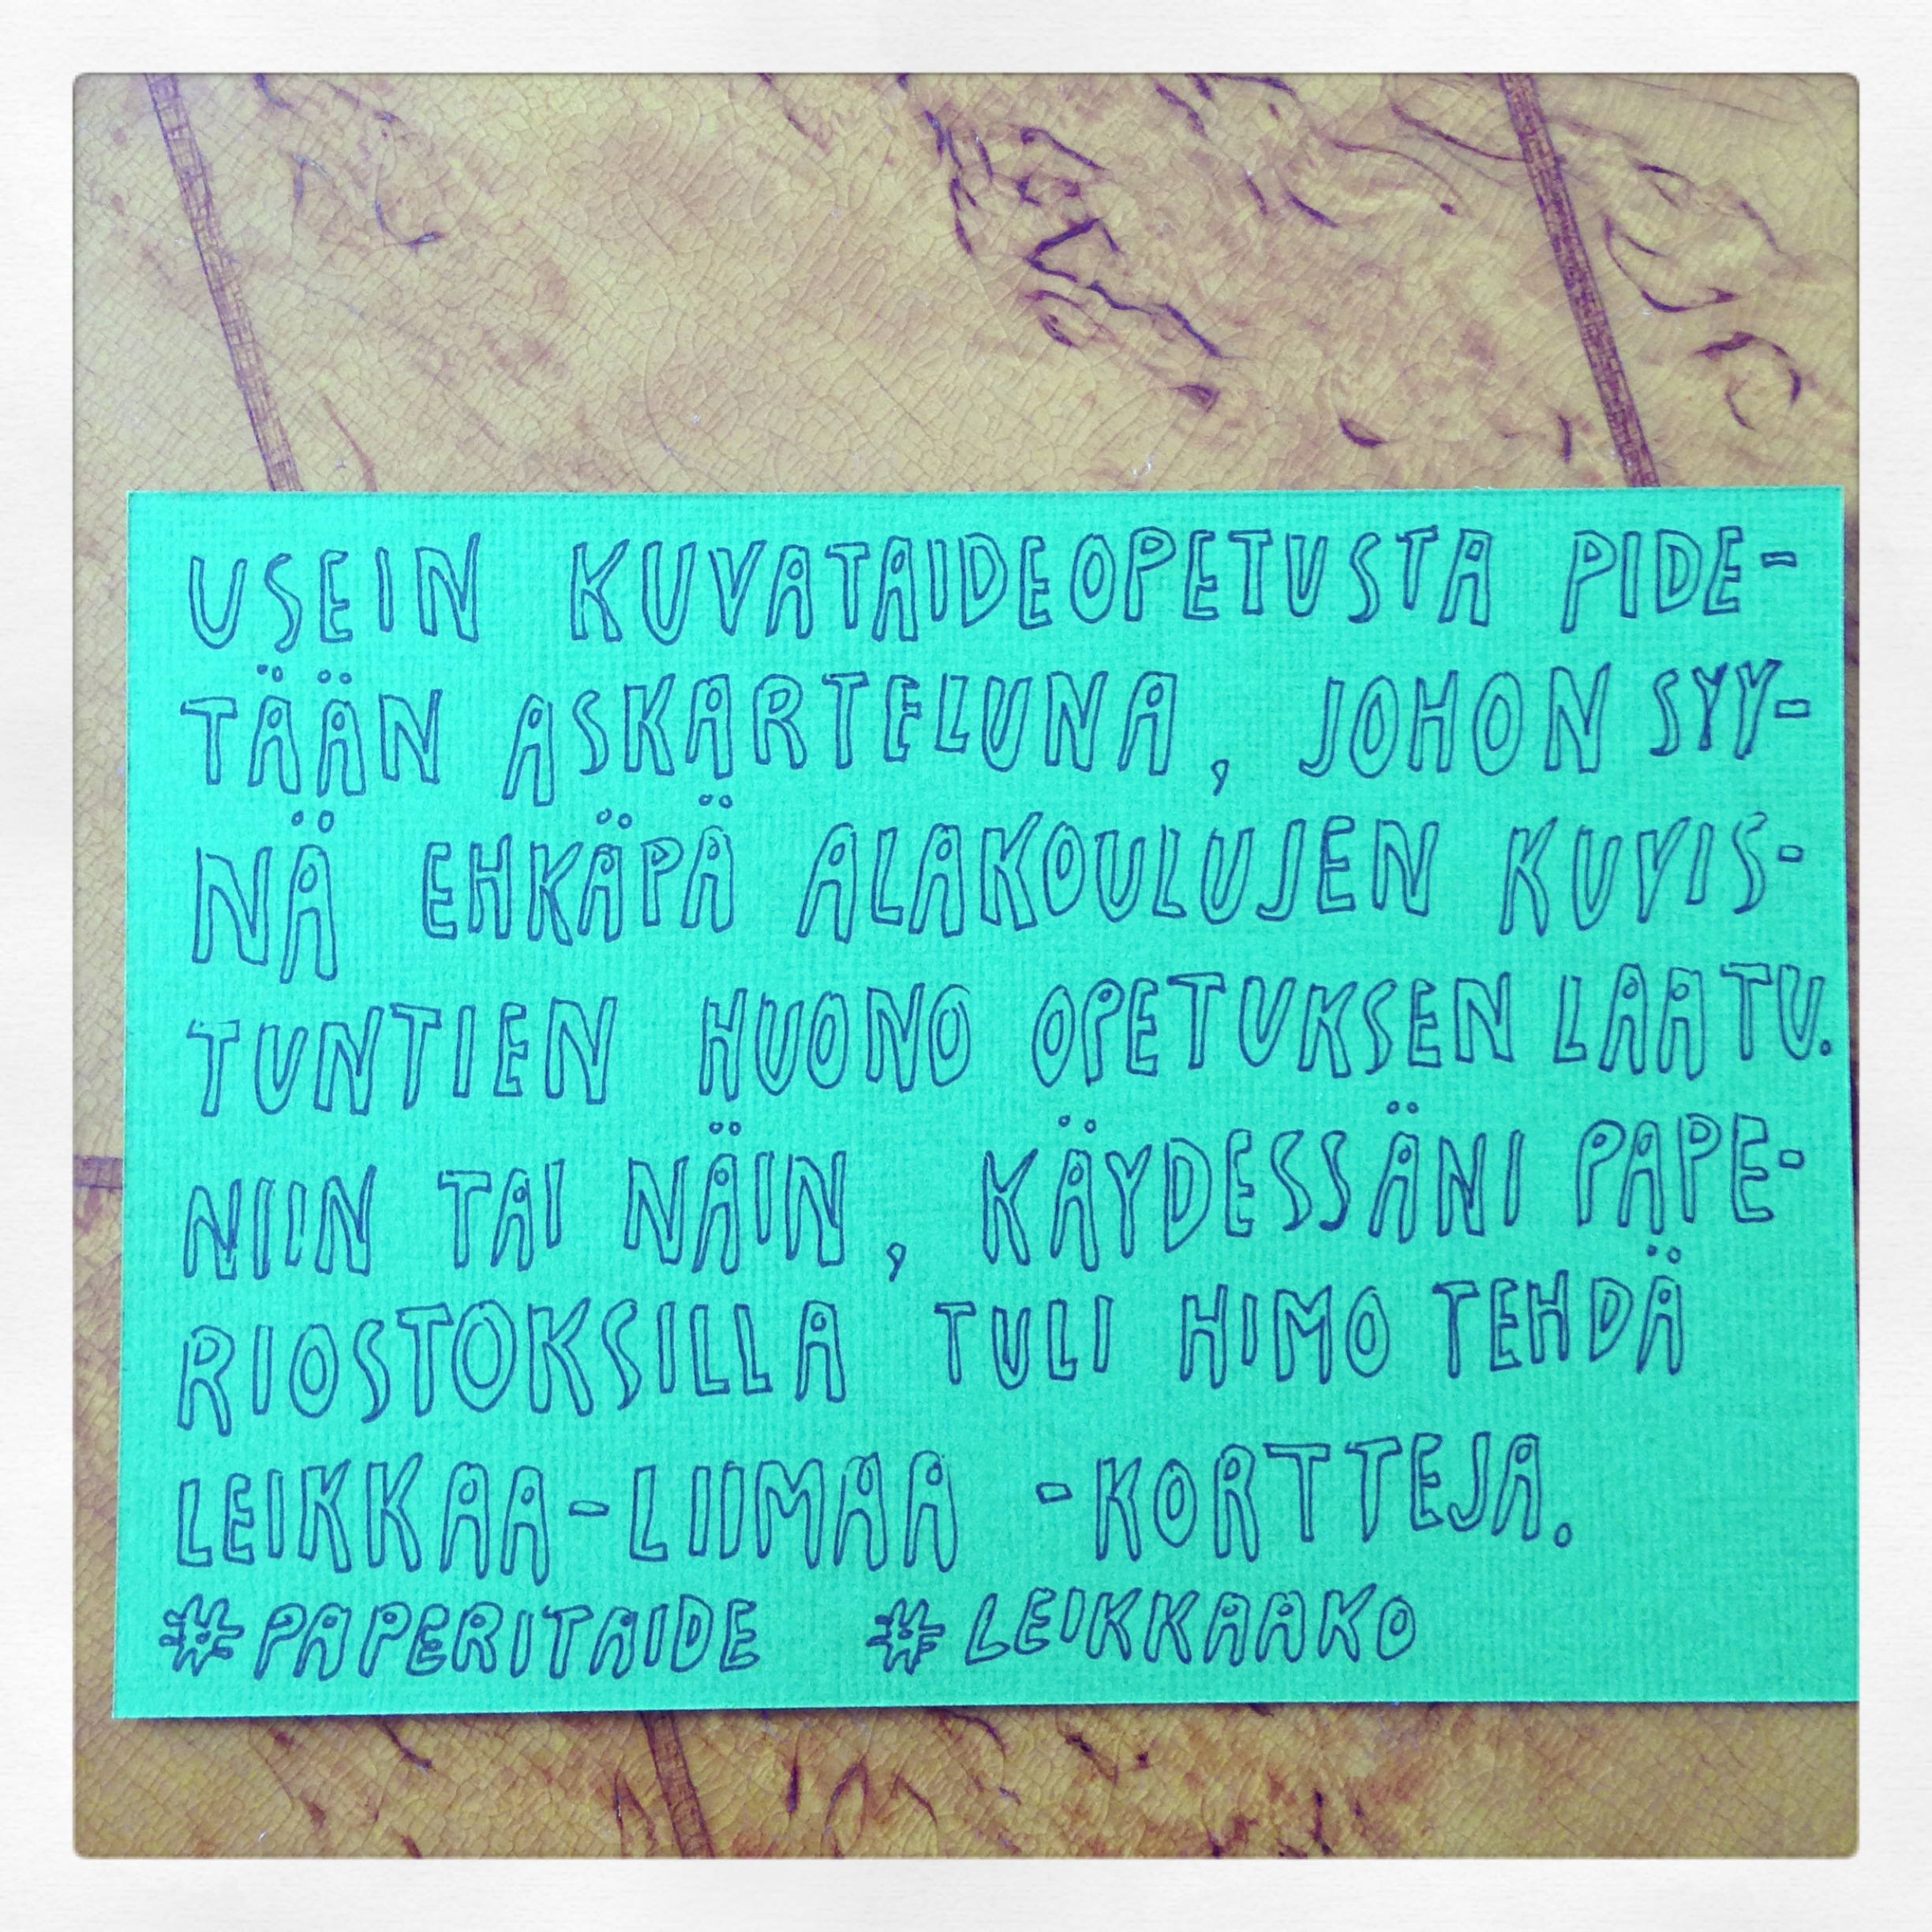 USEIN KUVATAIDEOPETUSTA PIDE-
TÄÄN ASKARTELUNA, JOHON SYY-
NÄ EHKÄPÄ ALAKOULUJEN KUVIS-
TUNTIEN HUONO OPETUKSEN LAATU.
NIIN TAI NÄIN, KÄYDESSÄNI PAPE-
RIOSTOKSILLA TULI HIMO TEHDÄ
LEIKKAA-LIIMAA -KORTTEJA.
#PAPERITAIDE #LEIKKAAKO